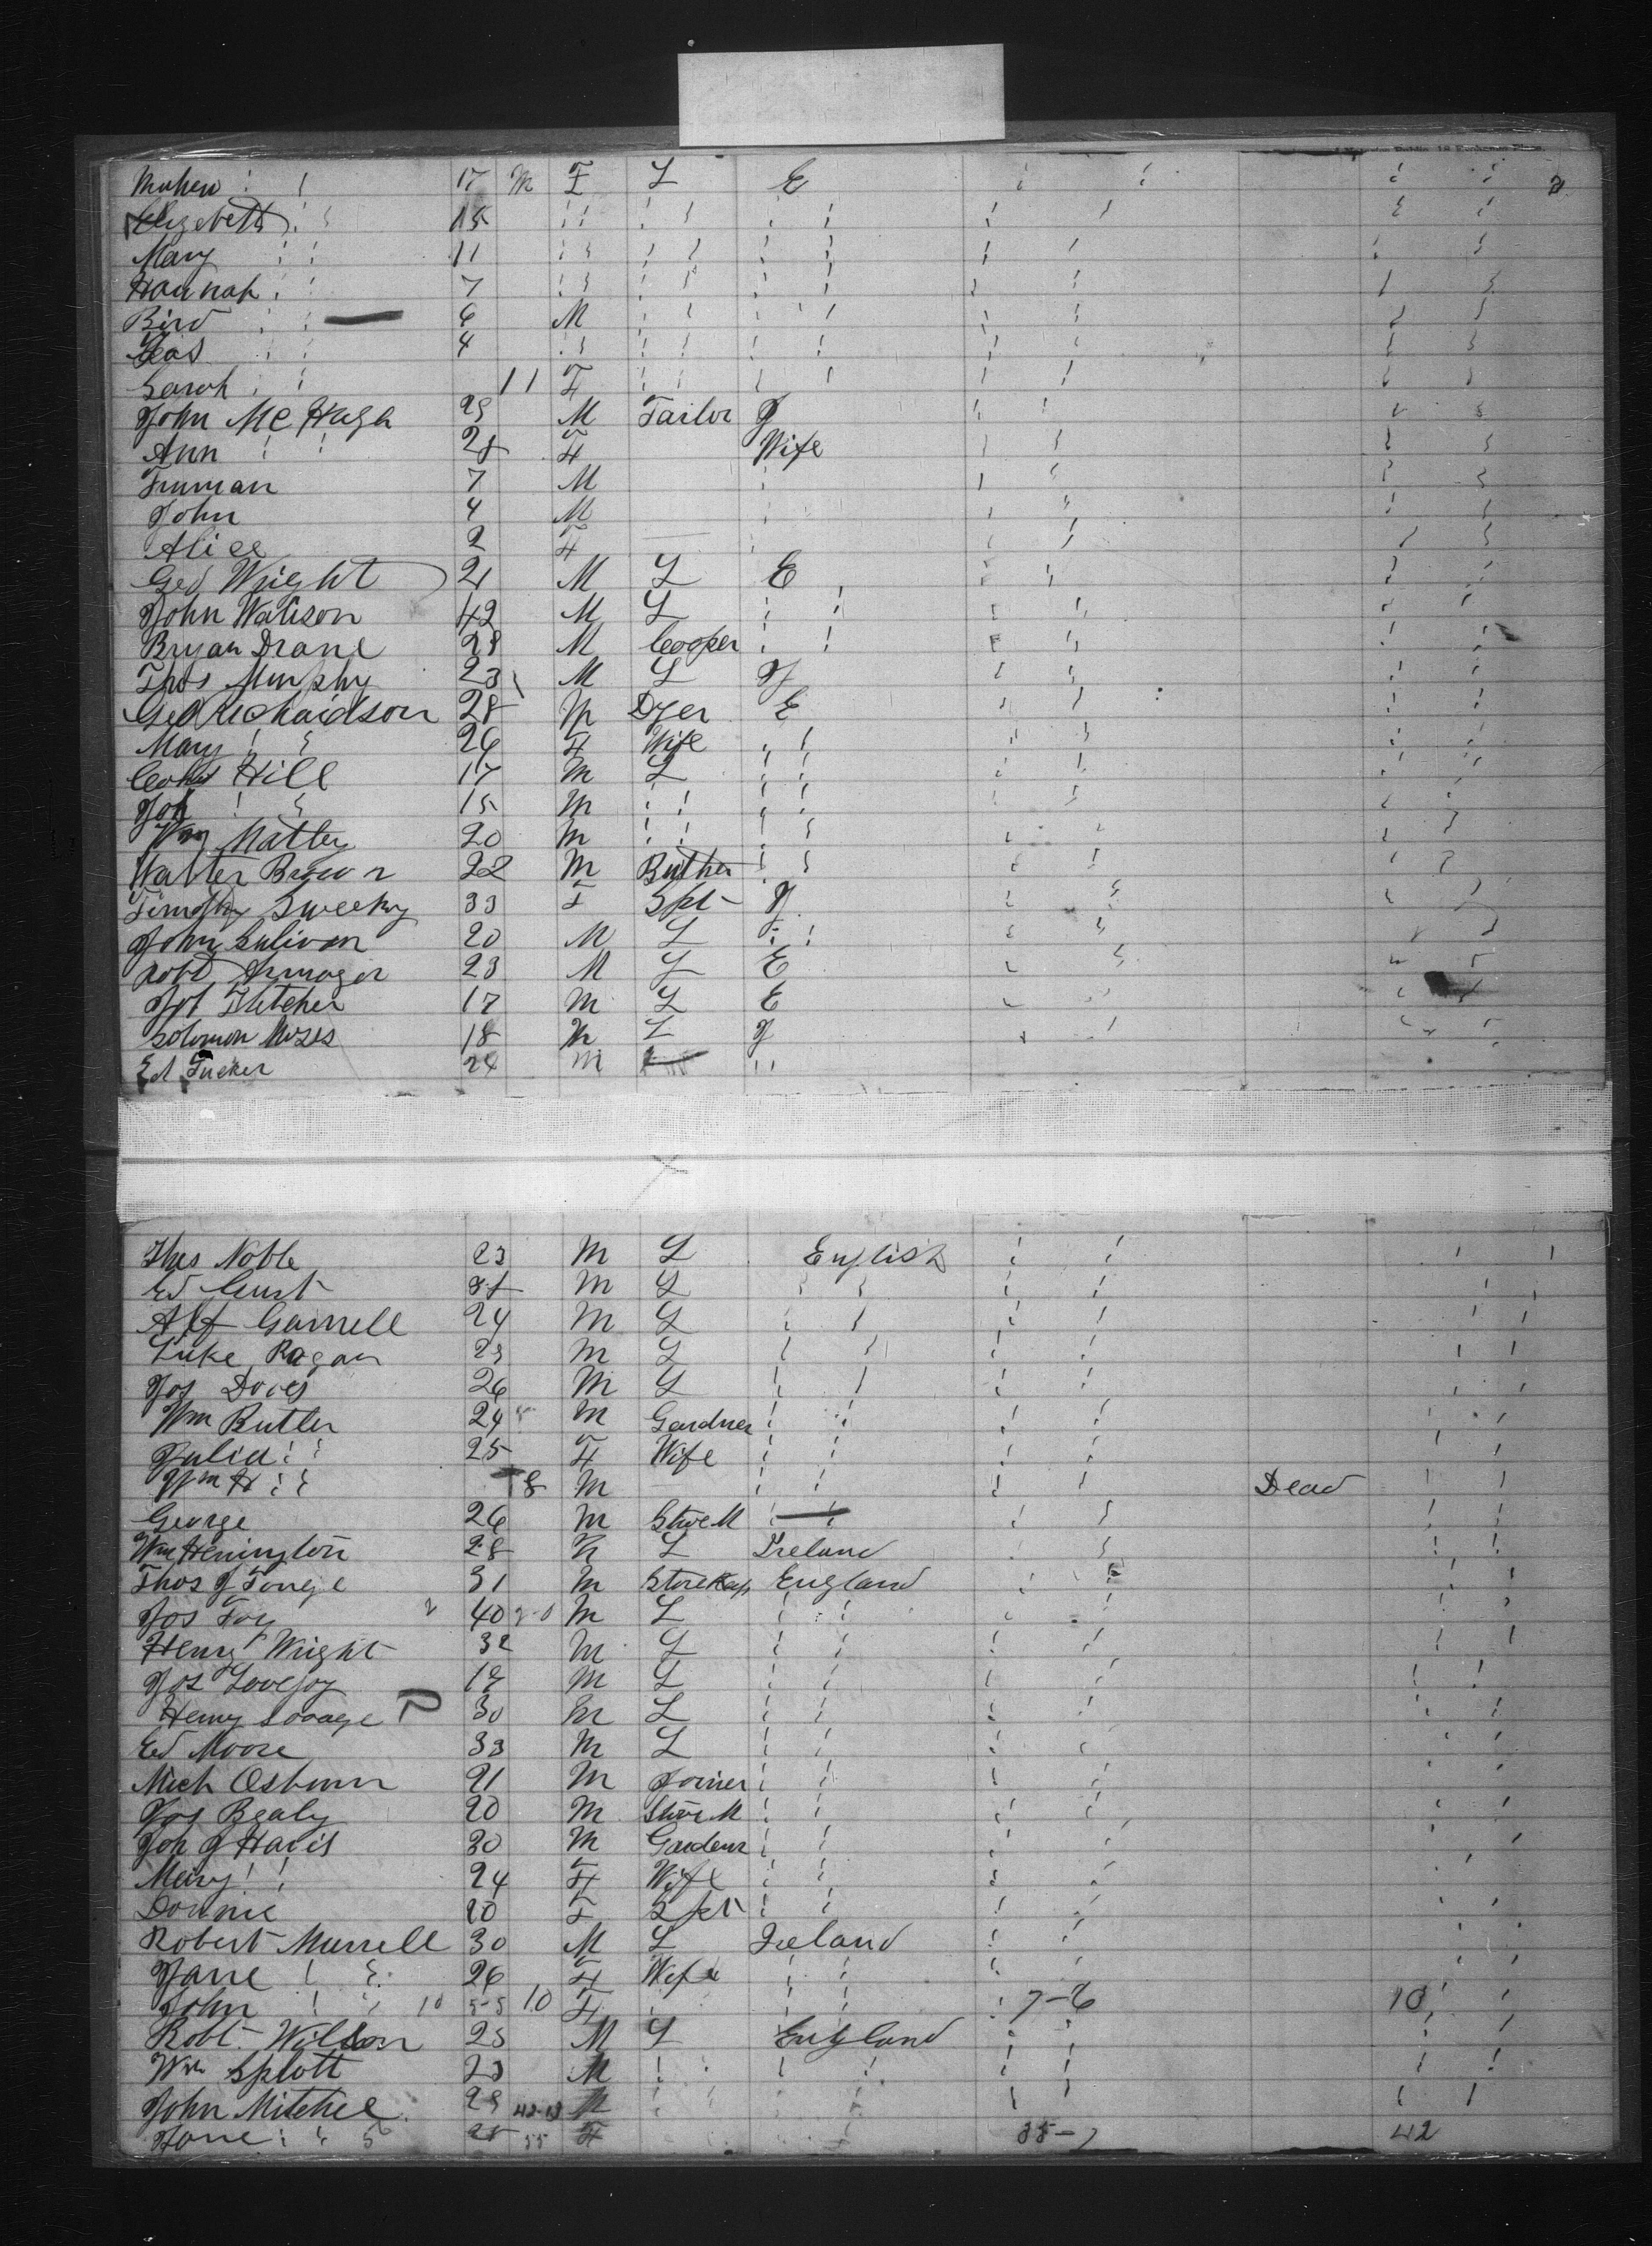 17 M F L E
Elizebeth 15
Mary 11
Hannah 7
Bird 6 M
Geos 4
Sarah 11 F
John Mc Hugh 29 M Tailor J
Ann 28 F Wife
Truman 7 M
John 4 M
Alice 2 F
Geo Wright 21 M L E
John Watison 42 M L
Bryan Drane 28 M Cooper
Thos Murphy 23 M L J
Geo Richardson 28 M Dyer E
Mary 26 F Wife
Hill 17 M L
Joh 15 M
Wm Matley 20 M
Walter Brown 22 M Buther
Timothy Sweeky 33 F Spt J
John Sulivan 20 M L
Robt Armager 23 M L E
Jos Fletcher 17 M L E
Solomon Moses 18 M L J
Ed Tucker 24 M L
Thos Noble 23 M L English
Ed M L
Alf Garnell 24 M L
Luke Ragan 23 M L
Jos Doves 26 M L
Wm Butler 24 M Gardner
Julia 25 F Wife
Wm H 8 M Dead
George 26 M Shoe M
Wm Henington 28 M L Ireland
Thos J Tonge 31 M StoreKep England
Jos Foy 40 M L
Henry Wright 32 M L
Jos Lovejoy 17 M L
Henry Savage 30 M L
Ed Moore 33 M L
Mich Osbourn 21 M Joiner
Jos Bealy 20 M Shoe M
Joh J Havis 30 M Gardenr
Mary 24 F Wife
Donnie 20 F Spt
Robert Murrell 30 M L Ireland
Jane 26 F Wife
John 10 10 F 7-6 10
Robt Willson 25 M L England
Wm Splott 23 M
John Mitchel 29 M
Jane 25 F 35-7 42